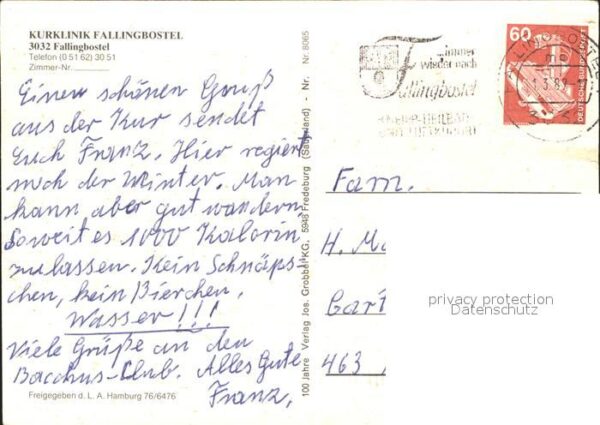 KURKLINIK FALLINGBOSTEL
3032 Fallingbostel
Telefon (0 51 62) 30 51
Zimmer-Nr.
Einen schönen Gruß
aus der Kur sendet
Euch Franz. Hier regiert
noch der Winter. Man
kann aber gut wandern
Soweit es 1000 Kalorin
zulassen. Kein Schnäps-
chen, kein Bierchen.
Wasser!!!
Viele Grüße an den
Bacchus-Club. Alles Gute
Franz.
Freigegeben d. L. A. Hamburg 76/6476
100 Jahre Verlag Jos. Grobbel KG, 5948 Fredeburg (Sauerland) - Nr. Nr. 8065
immer
wieder nach
Fallingbostel
KNEIPP-HEILBAD
UND LUFTKURORT
60
DEUTSCHE BUNDESPOST
Fam.
H. M
Gart
463
privacy protection
Datenschutz